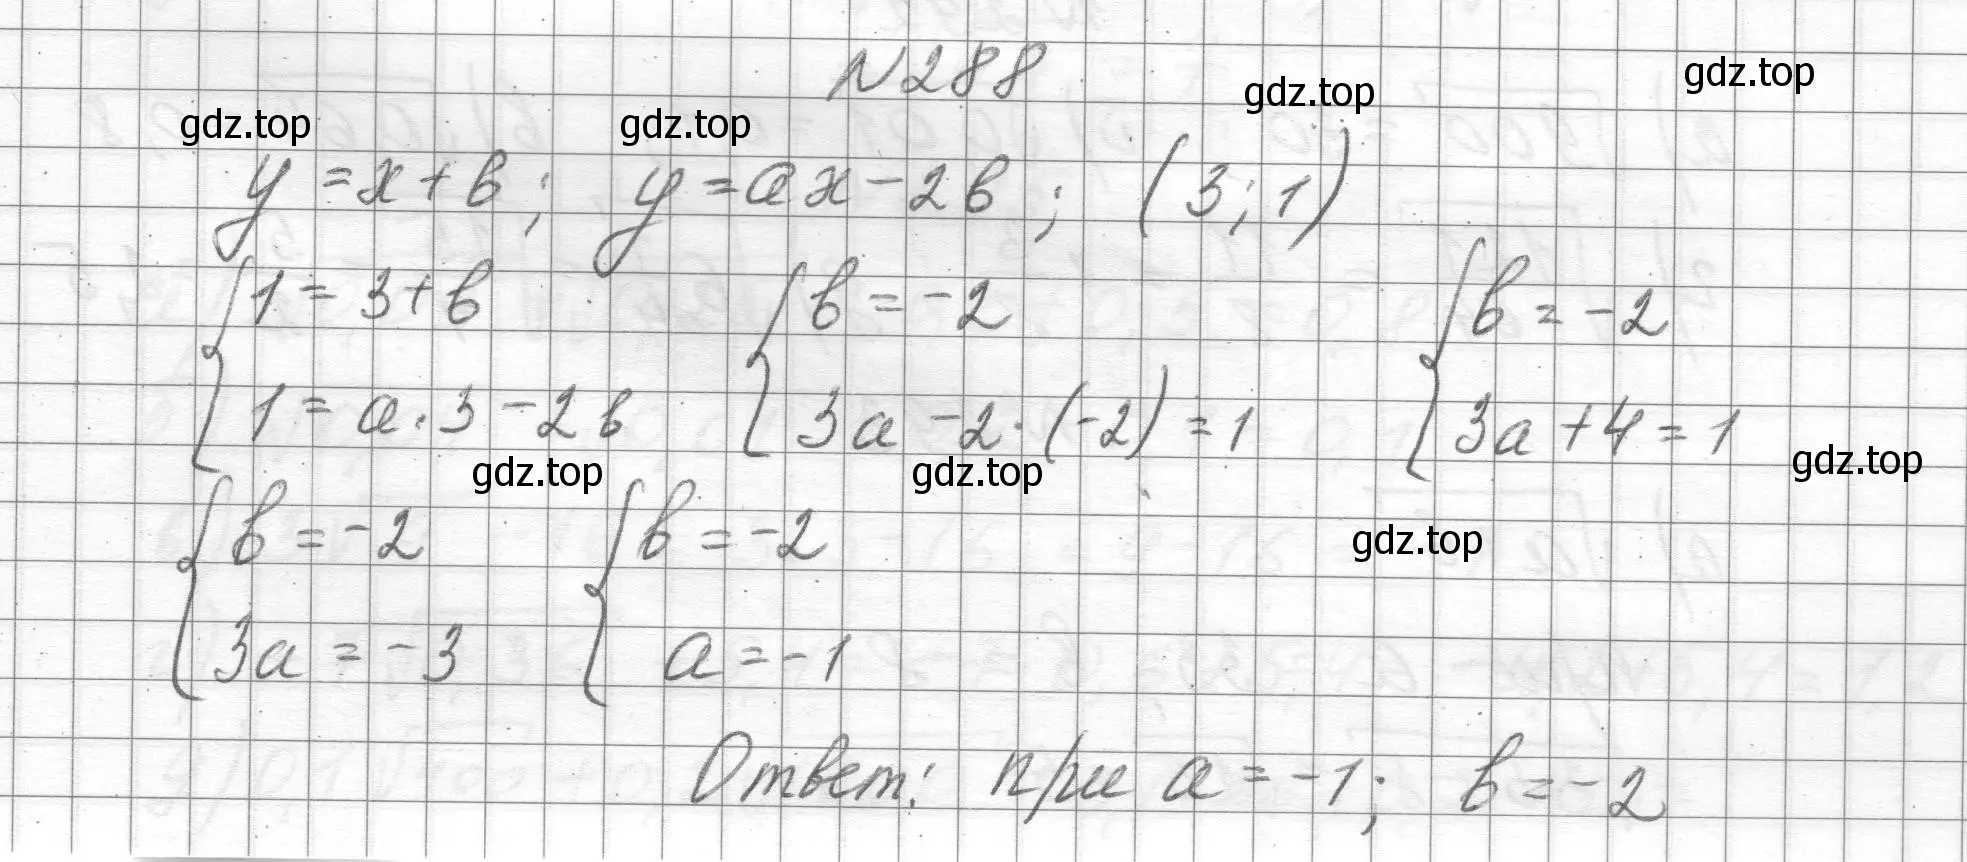 N288
gdz.top gdz.top gdz.top gdz.top
y = x + b; y = ax - 2b; (3; 1)
{ 1 = 3 + b { b = -2 { b = -2
1 = a · 3 - 2b 3a - 2 · (-2) = 1 3a + 4 = 1
gdz.top gdz.top gdz.top
{ b = -2 { b = -2 gdz.top
3a = -3 a = -1
Ответ: при a = -1; b = -2